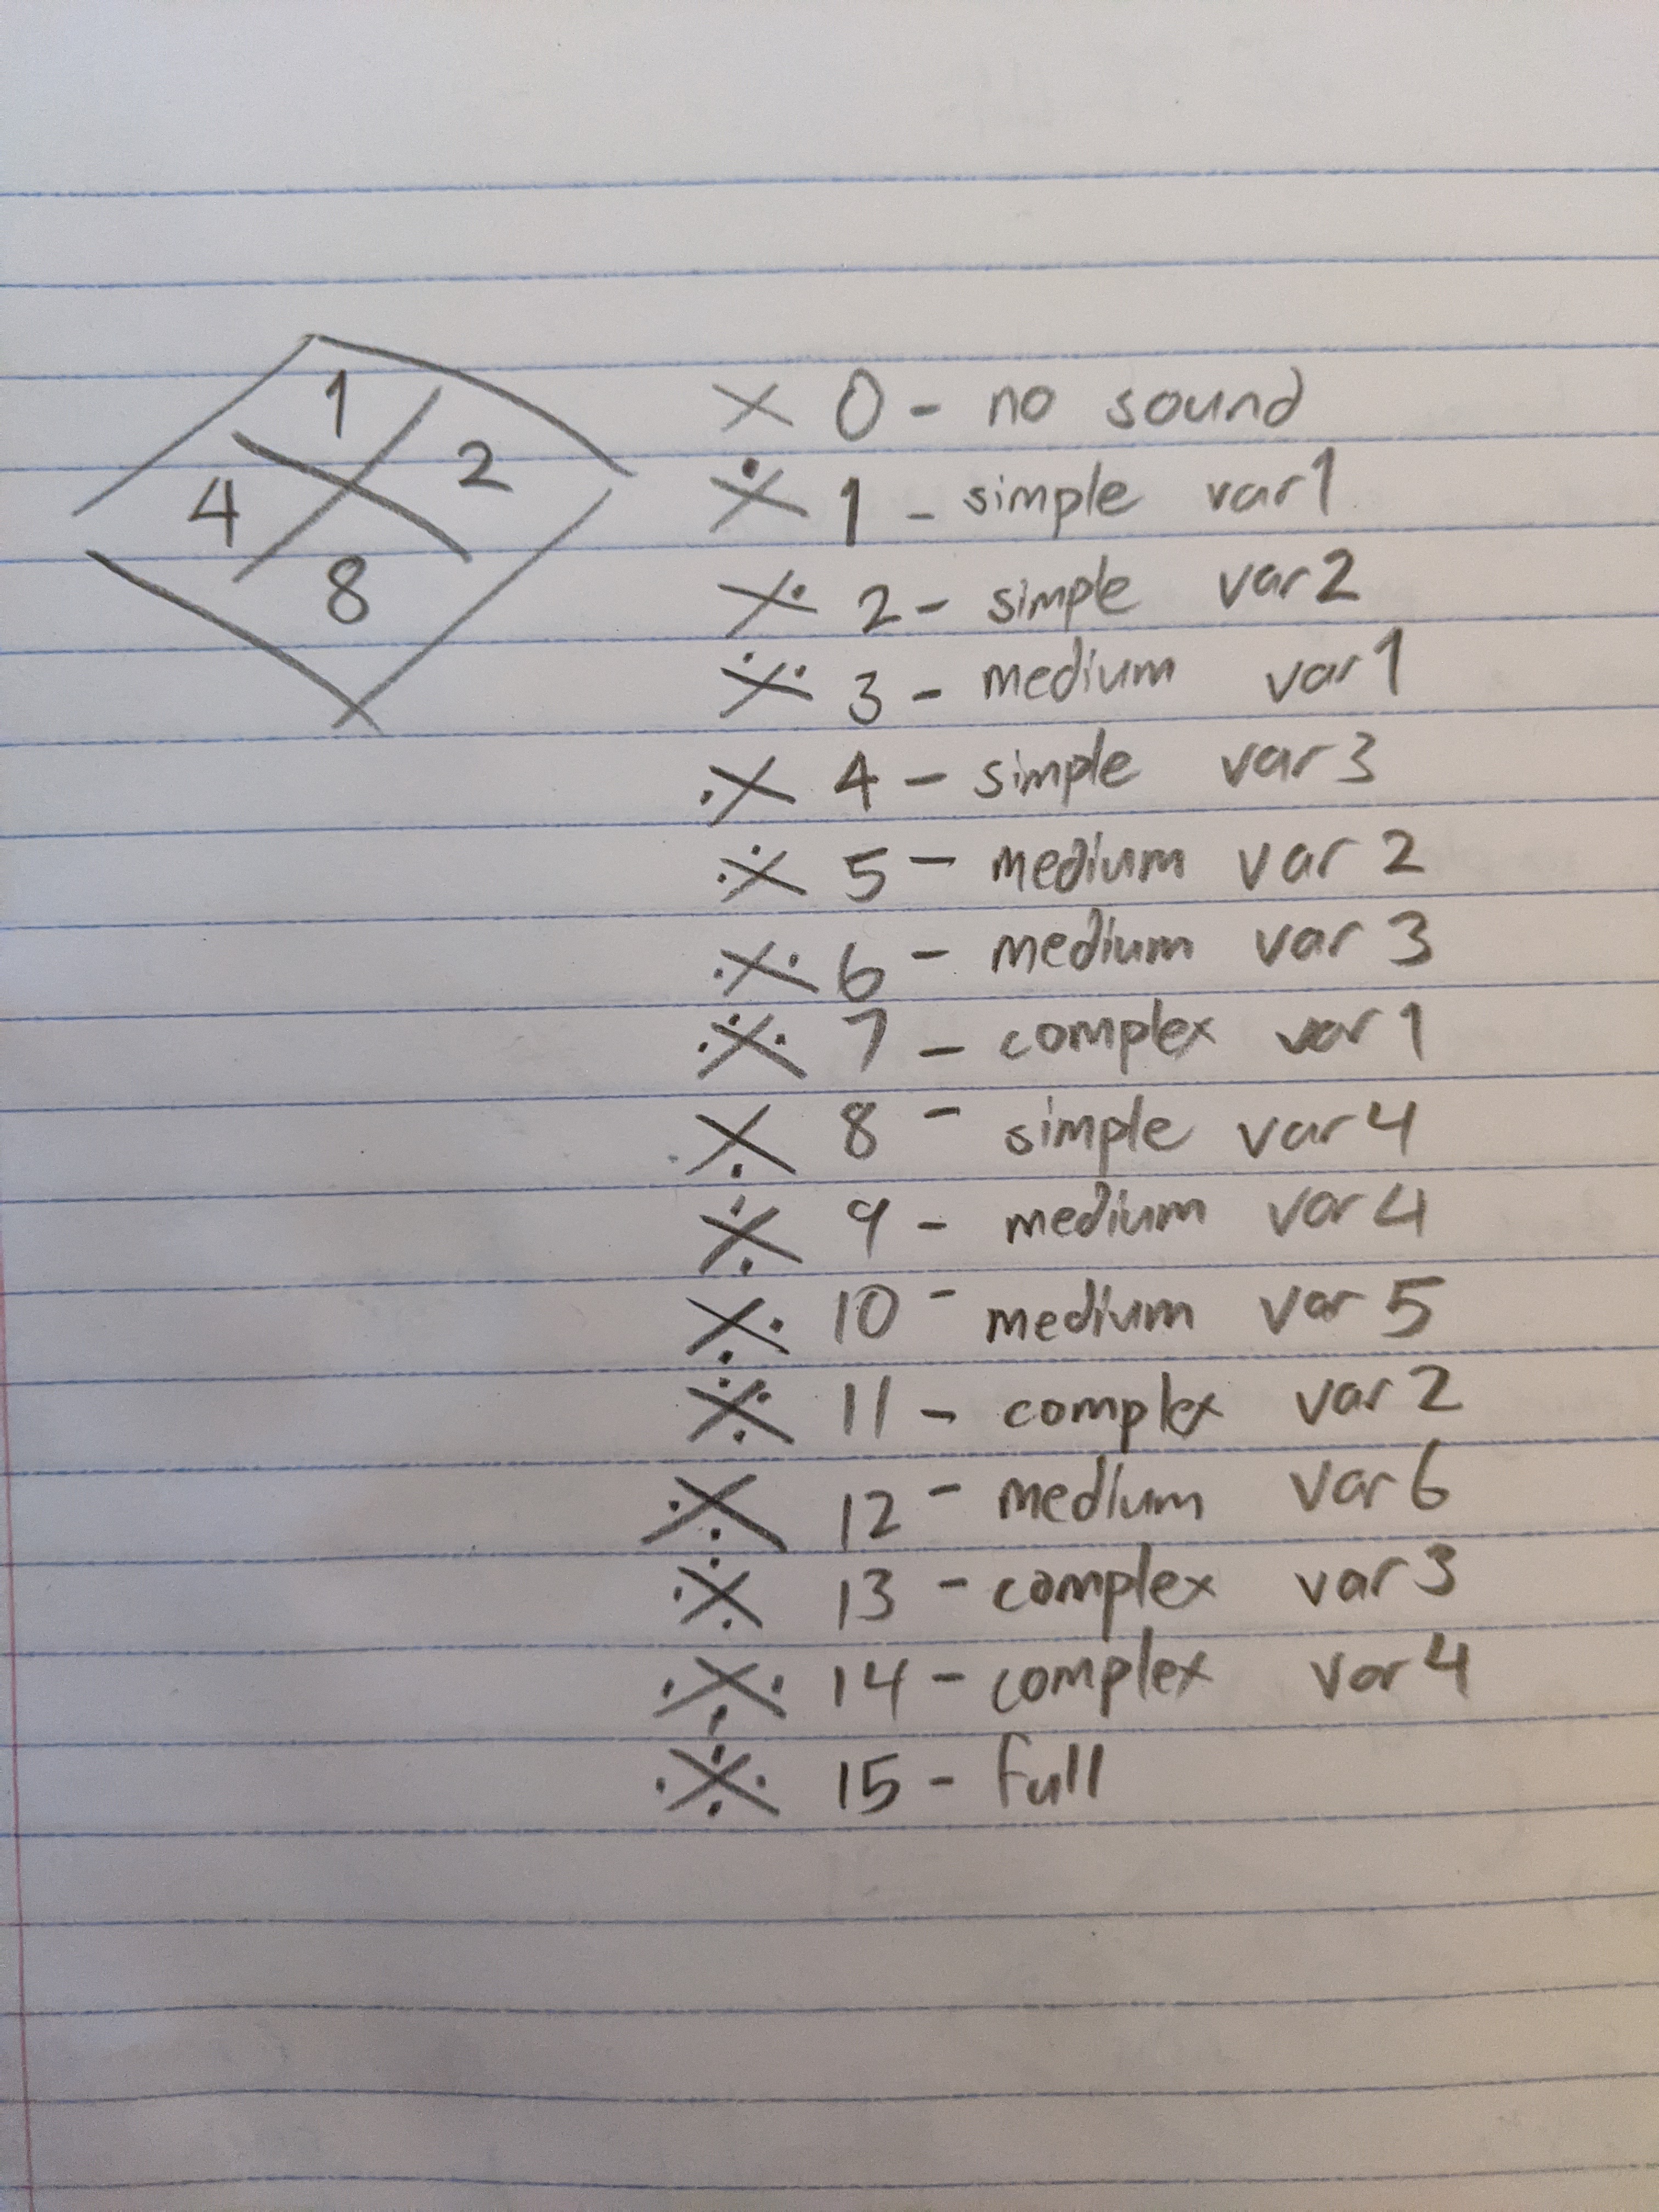 1
2
4
8
0 - no sound
1 - simple var1
2 - simple var2
3 - medium var1
4 - simple var3
5 - medium var 2
6 - medium var 3
7 - complex var 1
8 - simple var4
9 - medium var4
10 - medium var 5
11 - complex var 2
12 - medium var 6
13 - complex var3
14 - complex var4
15 - full